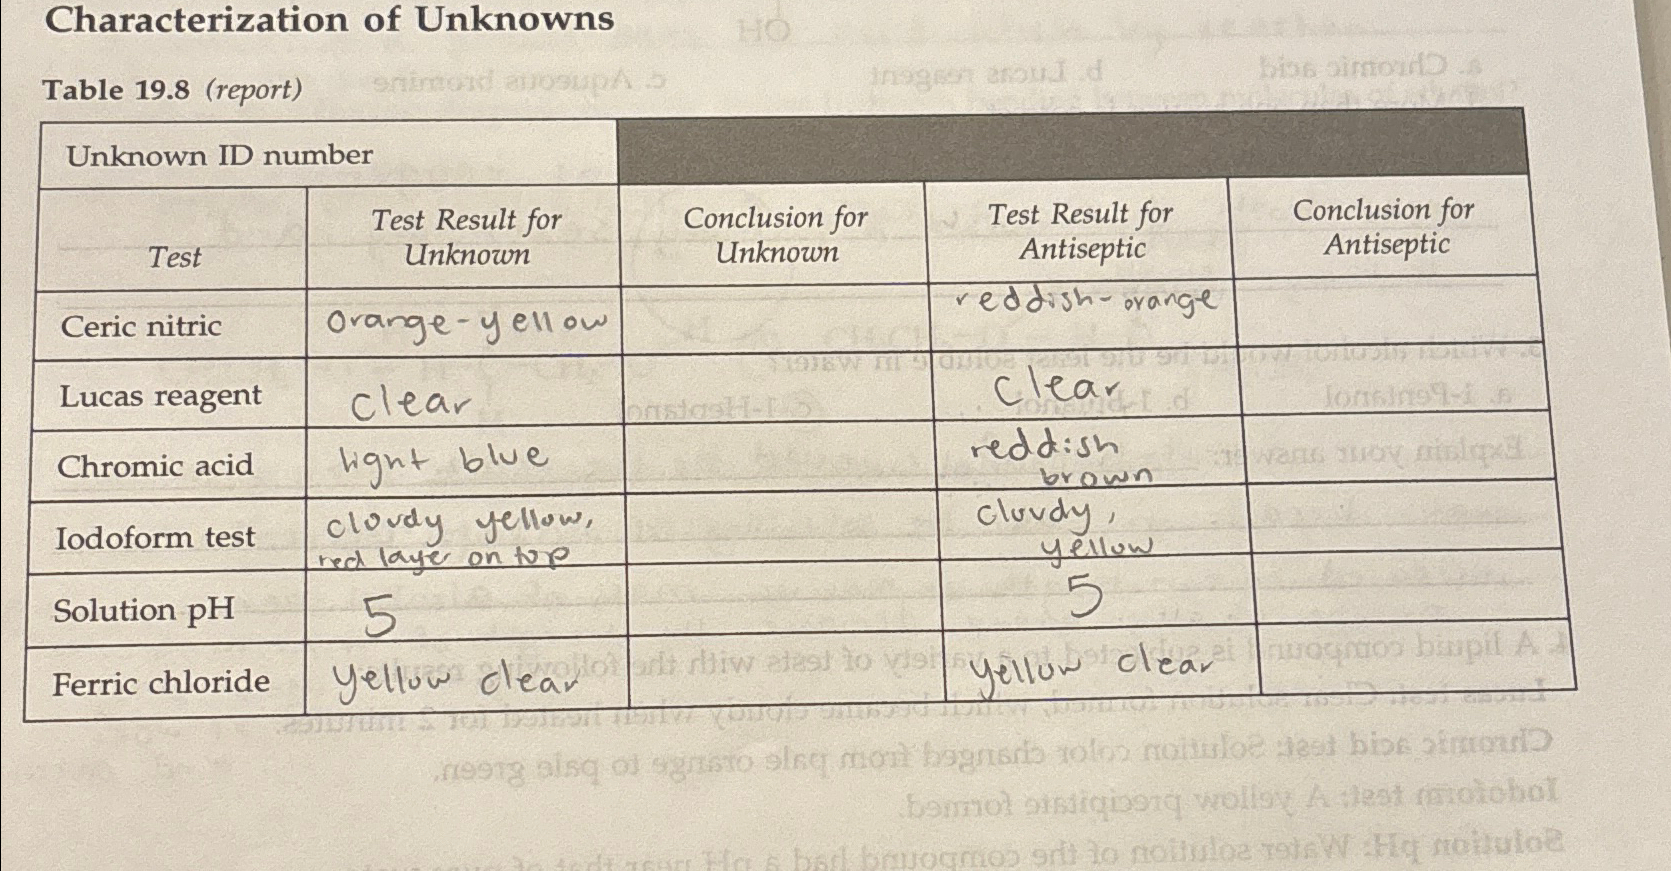 Characterization of Unknowns
Table 19.8 (report)
Unknown ID number
Test
Test Result for
Unknown
Conclusion for
Unknown
Test Result for
Antiseptic
Conclusion for
Antiseptic
Ceric nitric
orange-yellow
reddish-orange
Lucas reagent
clear
clear
Chromic acid
light blue
reddish
brown
Iodoform test
cloudy yellow,
red layer on top
cloudy,
yellow
Solution pH
5
5
Ferric chloride
yellow clear
yellow clear